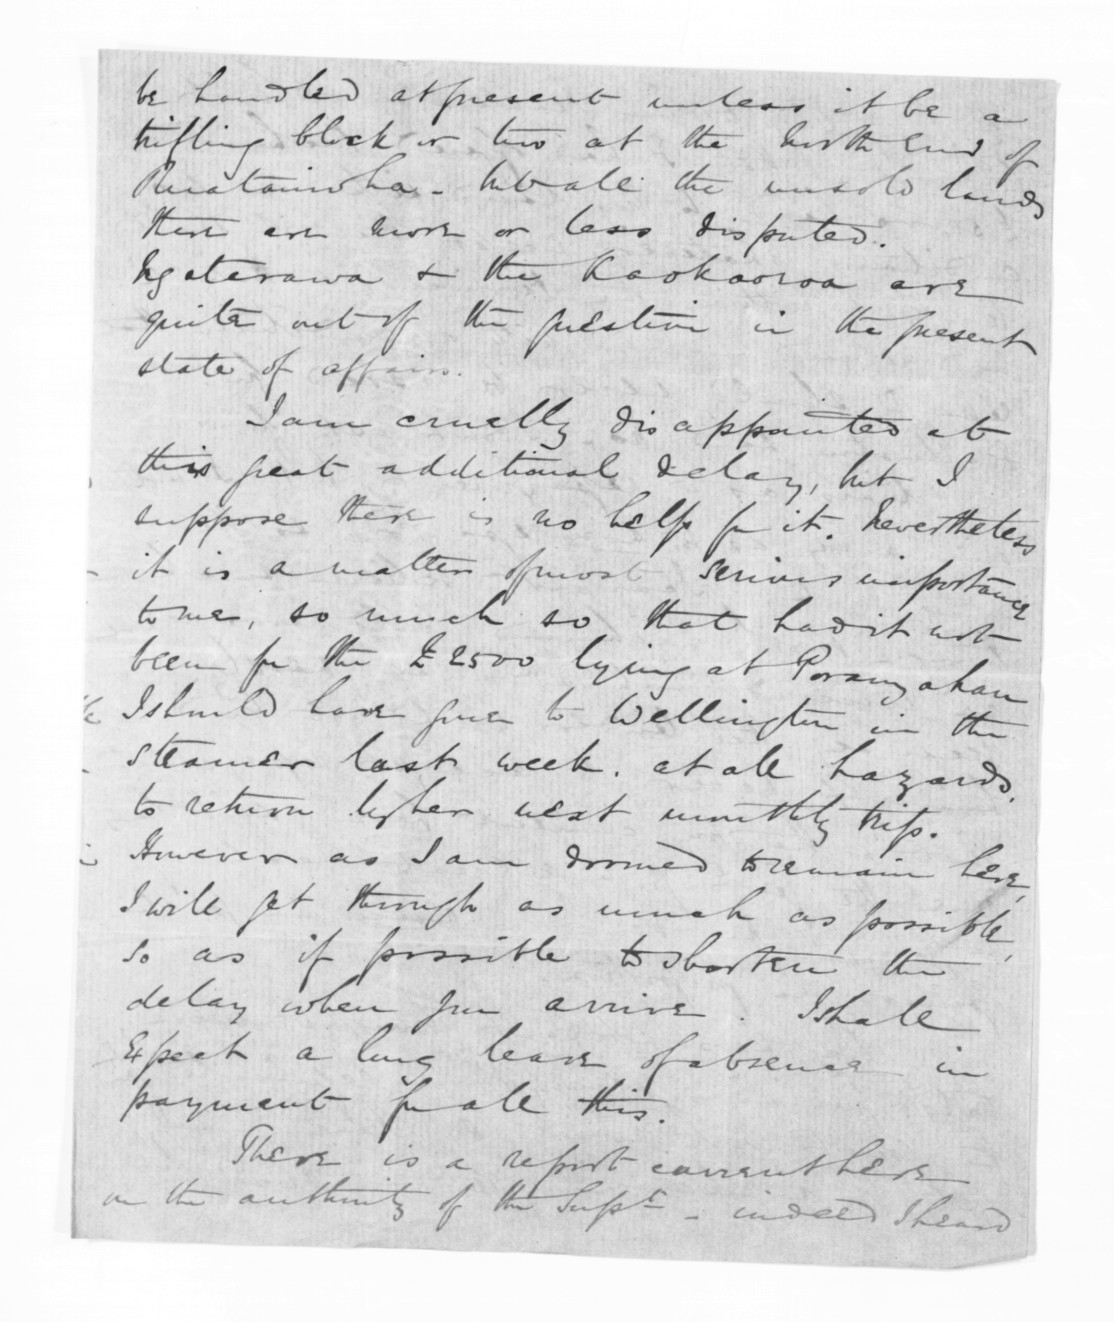 be handled at present unless it be a
trifling block or two at the North End of
Ruataniwha - but all the unsold lands
there are more or less disputed.
Ngaterawa & the Kaokaoroa are
quite out of the question in the present
state of affairs.
I am cruelly disappointed at
this great additional delay, but I
suppose there is no help for it. Nevertheless
it is a matter of most serious importance
to me, so much so that had it not
been for the £2500 lying at Porangahau
I should have gone to Wellington in the
steamer last week. at all hazards,
to return by her next monthly trip.
However as I am doomed to remain here,
I will get through as much as possible,
so as if possible to shorten the
delay when you arrive. I shall
Expect a long leave of absence in
payment for all this.
There is a report current here
on the authority of the Supt - indeed I heard